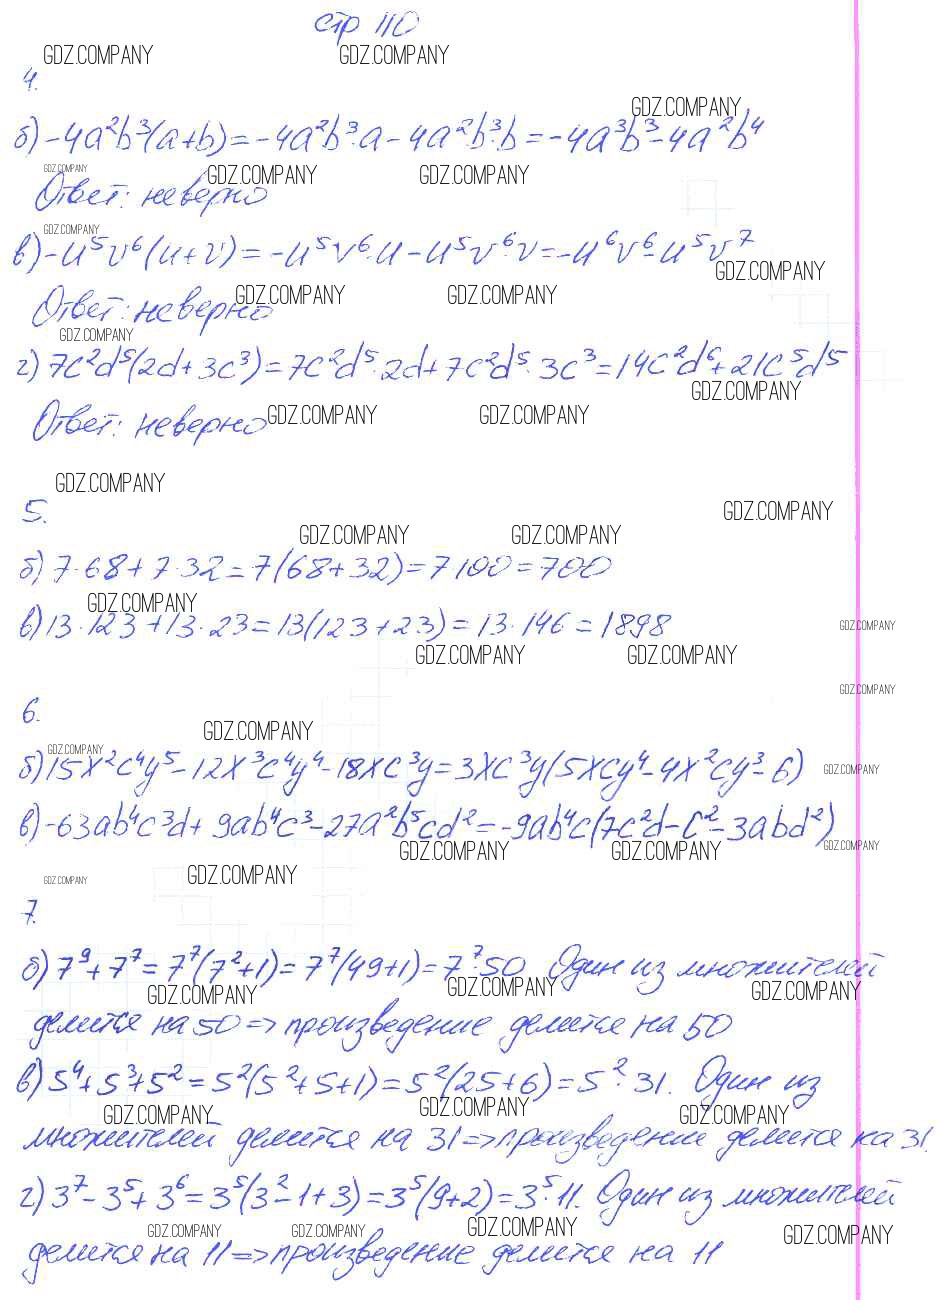 стр 110
GDZ.COMPANY GDZ.COMPANY
4.
GDZ.COMPANY
б) -4a²b³(a+b) = -4a²b³·a - 4a²b³·b = -4a³b³-4a²b⁴
GDZ.COMPANY GDZ.COMPANY GDZ.COMPANY
Ответ: неверно
GDZ.COMPANY
в) -u⁵v⁶(u+v) = -u⁵v⁶·u - u⁵v⁶·v = -u⁶v⁶-u⁵v⁷
GDZ.COMPANY
GDZ.COMPANY GDZ.COMPANY
Ответ: неверно
GDZ.COMPANY
г) 7c²d⁵(2d+3c³) = 7c²d⁵·2d+7c²d⁵·3c³ = 14c²d⁶+21c⁵d⁵
GDZ.COMPANY
GDZ.COMPANY GDZ.COMPANY
Ответ: неверно
GDZ.COMPANY
5.
GDZ.COMPANY
GDZ.COMPANY GDZ.COMPANY
б) 7·68+7·32 = 7(68+32) = 7·100 = 700
GDZ.COMPANY
в) 13·123+13·23 = 13(123+23) = 13·146 = 1898
GDZ.COMPANY
GDZ.COMPANY GDZ.COMPANY
GDZ.COMPANY
6.
GDZ.COMPANY
GDZ.COMPANY
б) 15x²c⁴y⁵-12x³c⁴y⁴-18xc³y = 3xc³y(5xcy⁴-4x²cy³-6)
GDZ.COMPANY
в) -63ab⁴c³d+9ab⁴c³-27a²b⁵cd² = -9ab⁴c(7c²d-c²-3abd²)
GDZ.COMPANY GDZ.COMPANY GDZ.COMPANY
GDZ.COMPANY GDZ.COMPANY
7.
б) 7⁹+7⁷ = 7⁷(7²+1) = 7⁷(49+1) = 7⁷·50 Один из множителей
GDZ.COMPANY GDZ.COMPANY GDZ.COMPANY
делится на 50 => произведение делится на 50
в) 5⁴+5³+5² = 5²(5²+5+1) = 5²(25+6) = 5²·31. Один из
GDZ.COMPANY GDZ.COMPANY GDZ.COMPANY
множителей делится на 31 => произведение делится на 31.
г) 3⁷-3⁵+3⁶ = 3⁵(3²-1+3) = 3⁵(9+2) = 3⁵·11. Один из множителей
GDZ.COMPANY GDZ.COMPANY GDZ.COMPANY GDZ.COMPANY
делится на 11 => произведение делится на 11